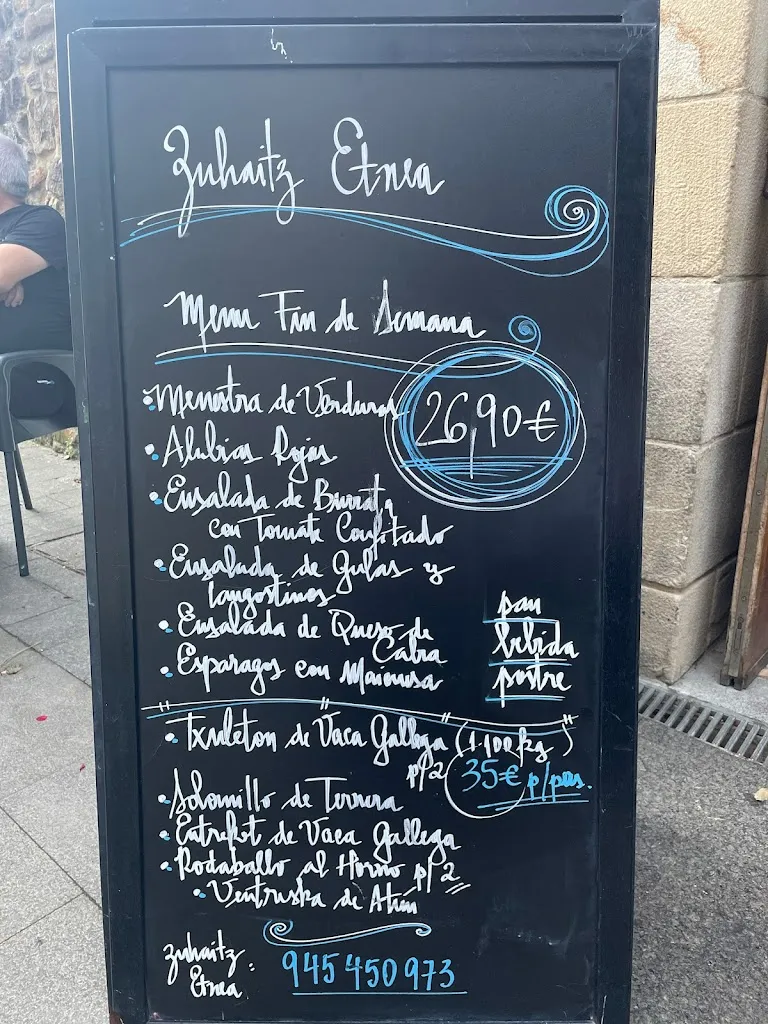 Zuhaitz Etnea
Menu Fin de Semana
26,90€
• Menestra de Verduras
• Alubias Rojas
• Ensalada de Burrata
con Tomate Confitado
• Ensalada de Gulas y
langostinos
• Ensalada de Queso de
Cabra
• Esparragos con Maionesa
pan
bebida
postre
• Txuleton de Vaca Gallega (1.100kg)
p/2 35€ p/pers.
• Solomillo de Ternera
• Entrekot de Vaca Gallega
• Rodaballo al Horno p/2
• Ventruska de Atún
Zuhaitz
Etnea : 945 450 973